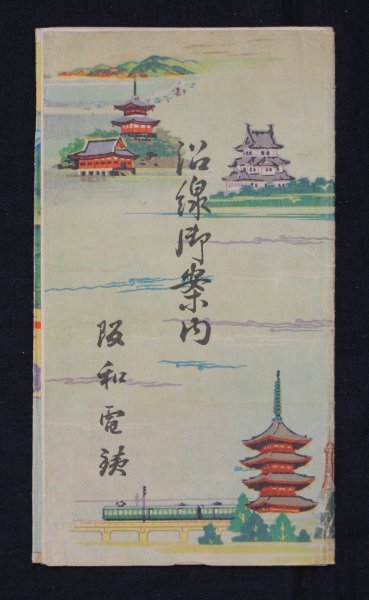 沿線御案内
阪和電鐵